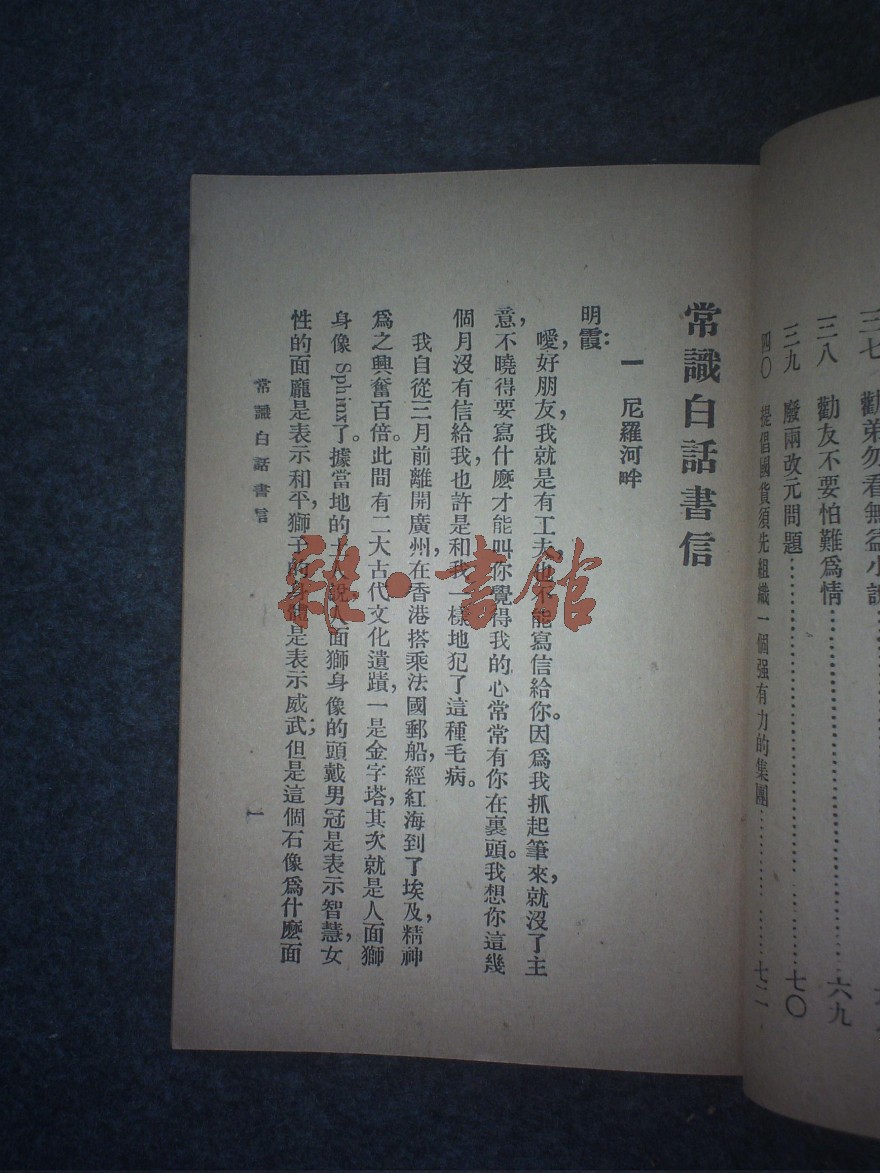 三七 勸弟勿看無益小說
三八 勸友不要怕難爲情……六九
三九 廢兩改元問題……七〇
四〇 提倡國貨須先組織一個强有力的集團……七二
常識白話書信
一 尼羅河畔
明霞：
噯，好朋友，我就是有工夫，也不能寫信給你。因爲我抓起筆來，就沒了主
意，不曉得要寫什麽才能叫你覺得我的心常常有你在裏頭。我想你這幾
個月沒有信給我，也許是和我一樣地犯了這種毛病。
我自從三月前離開廣州，在香港搭乘法國郵船，經紅海到了埃及，精神
爲之興奮百倍。此間有二大古代文化遺蹟，一是金字塔，其次就是人面獅
身像 Sphinx 了。據當地的土人說，人面獅身像的頭戴男冠是表示智慧，女
性的面龐是表示和平，獅子的身體是表示威武；但是這個石像爲什麽面
常識白話書信
一
雜·書館